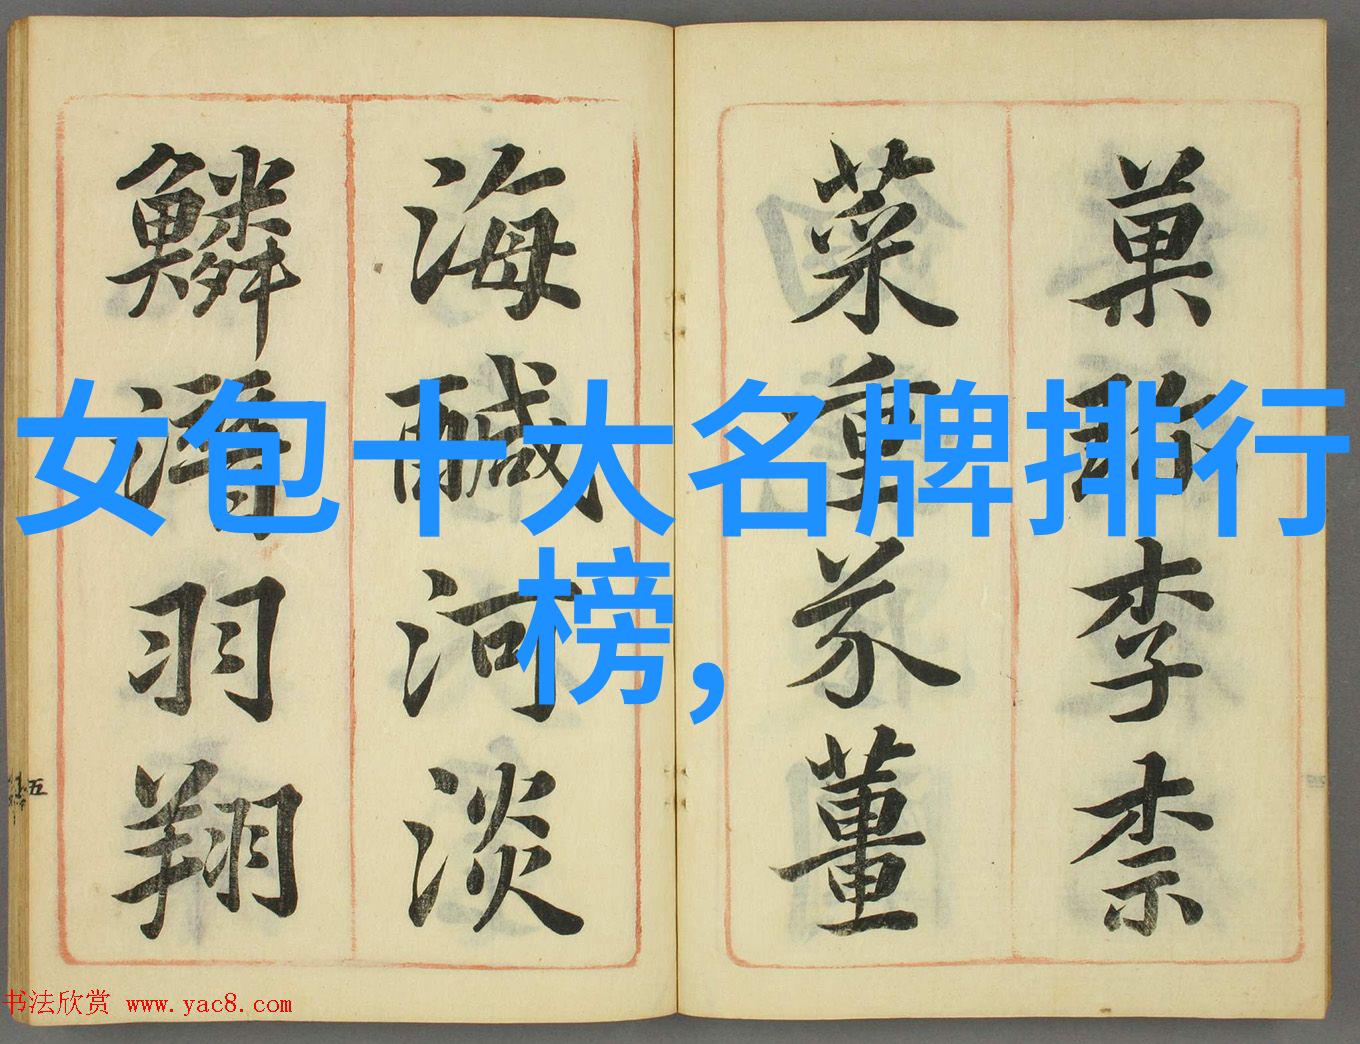 女包十大名牌排行
榜,
菓珎李柰
菜重芥薑
海醎河淡
鱗潛羽翔
五
书法欣赏 www.yac8.com